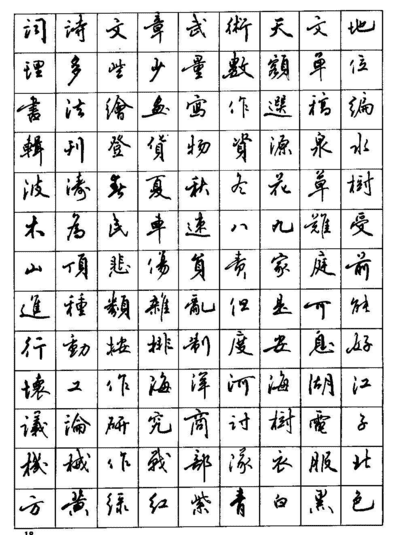 詞詩文章武術天文地
理多些少量數額單位
書法繪畫寫作選稿編
輯刊登貨物資源泉水
波濤春夏秋冬花草樹
木為民車速八九難受
山頂悲傷負責家庭前
進種類雜亂但是可能
行動按排制度安息好
壞工作海洋河海湖江
議論研究商討樹電子
機械作戰部隊衣服北
方黃綠紅紫青白黑色
18